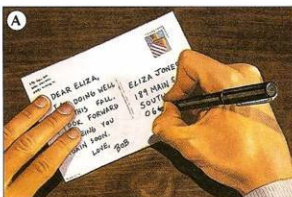 A
DEAR ELIZA,
DOING WELL
THIS FALL.
OOK FORWARD
ING YOU
AIN SOON.
LOVE, BOB
ELIZA JONES
189 MAIN S
SOUTH